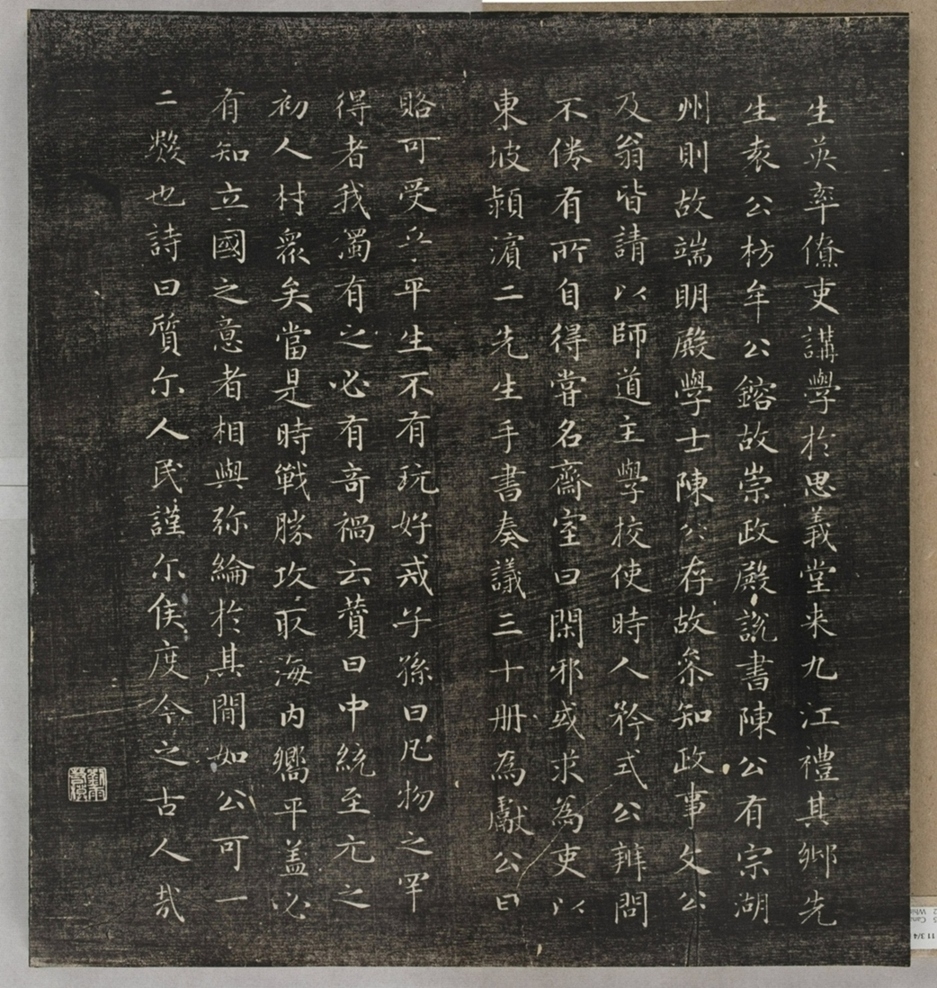 生英率僚吏講學於思義堂來九江禮其鄉先
生袁公枋牟公鎔故崇政殿說書陳公有宗湖
州則故端明殿學士陳公存故叅知政事文公
及翁皆請以師道主學校使時人矜式公辨問
不倦有所自得嘗名齋室曰閑邪或求為吏以
東坡潁濱二先生手書奏議三十册為獻公曰
賂可受乎平生不有玩好戒子孫曰凡物之罕
得者我獨有之必有奇禍云贊曰中統至元之
初人材衆矣當是時戰勝攻取海内嚮平盖必
有知立國之意者相與弥綸於其間如公可一
二數也詩曰質尓人民謹尓侯度今之古人哉